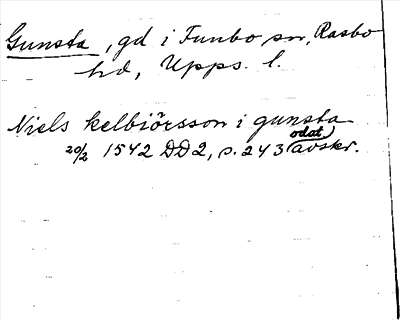 Gunsta, gd i Funbo sn, Rasbo
hd, Upps. l.
Niels kelbiörsson i gunsta
20/2 1542 DD2, s. 243 (odat) avskr.